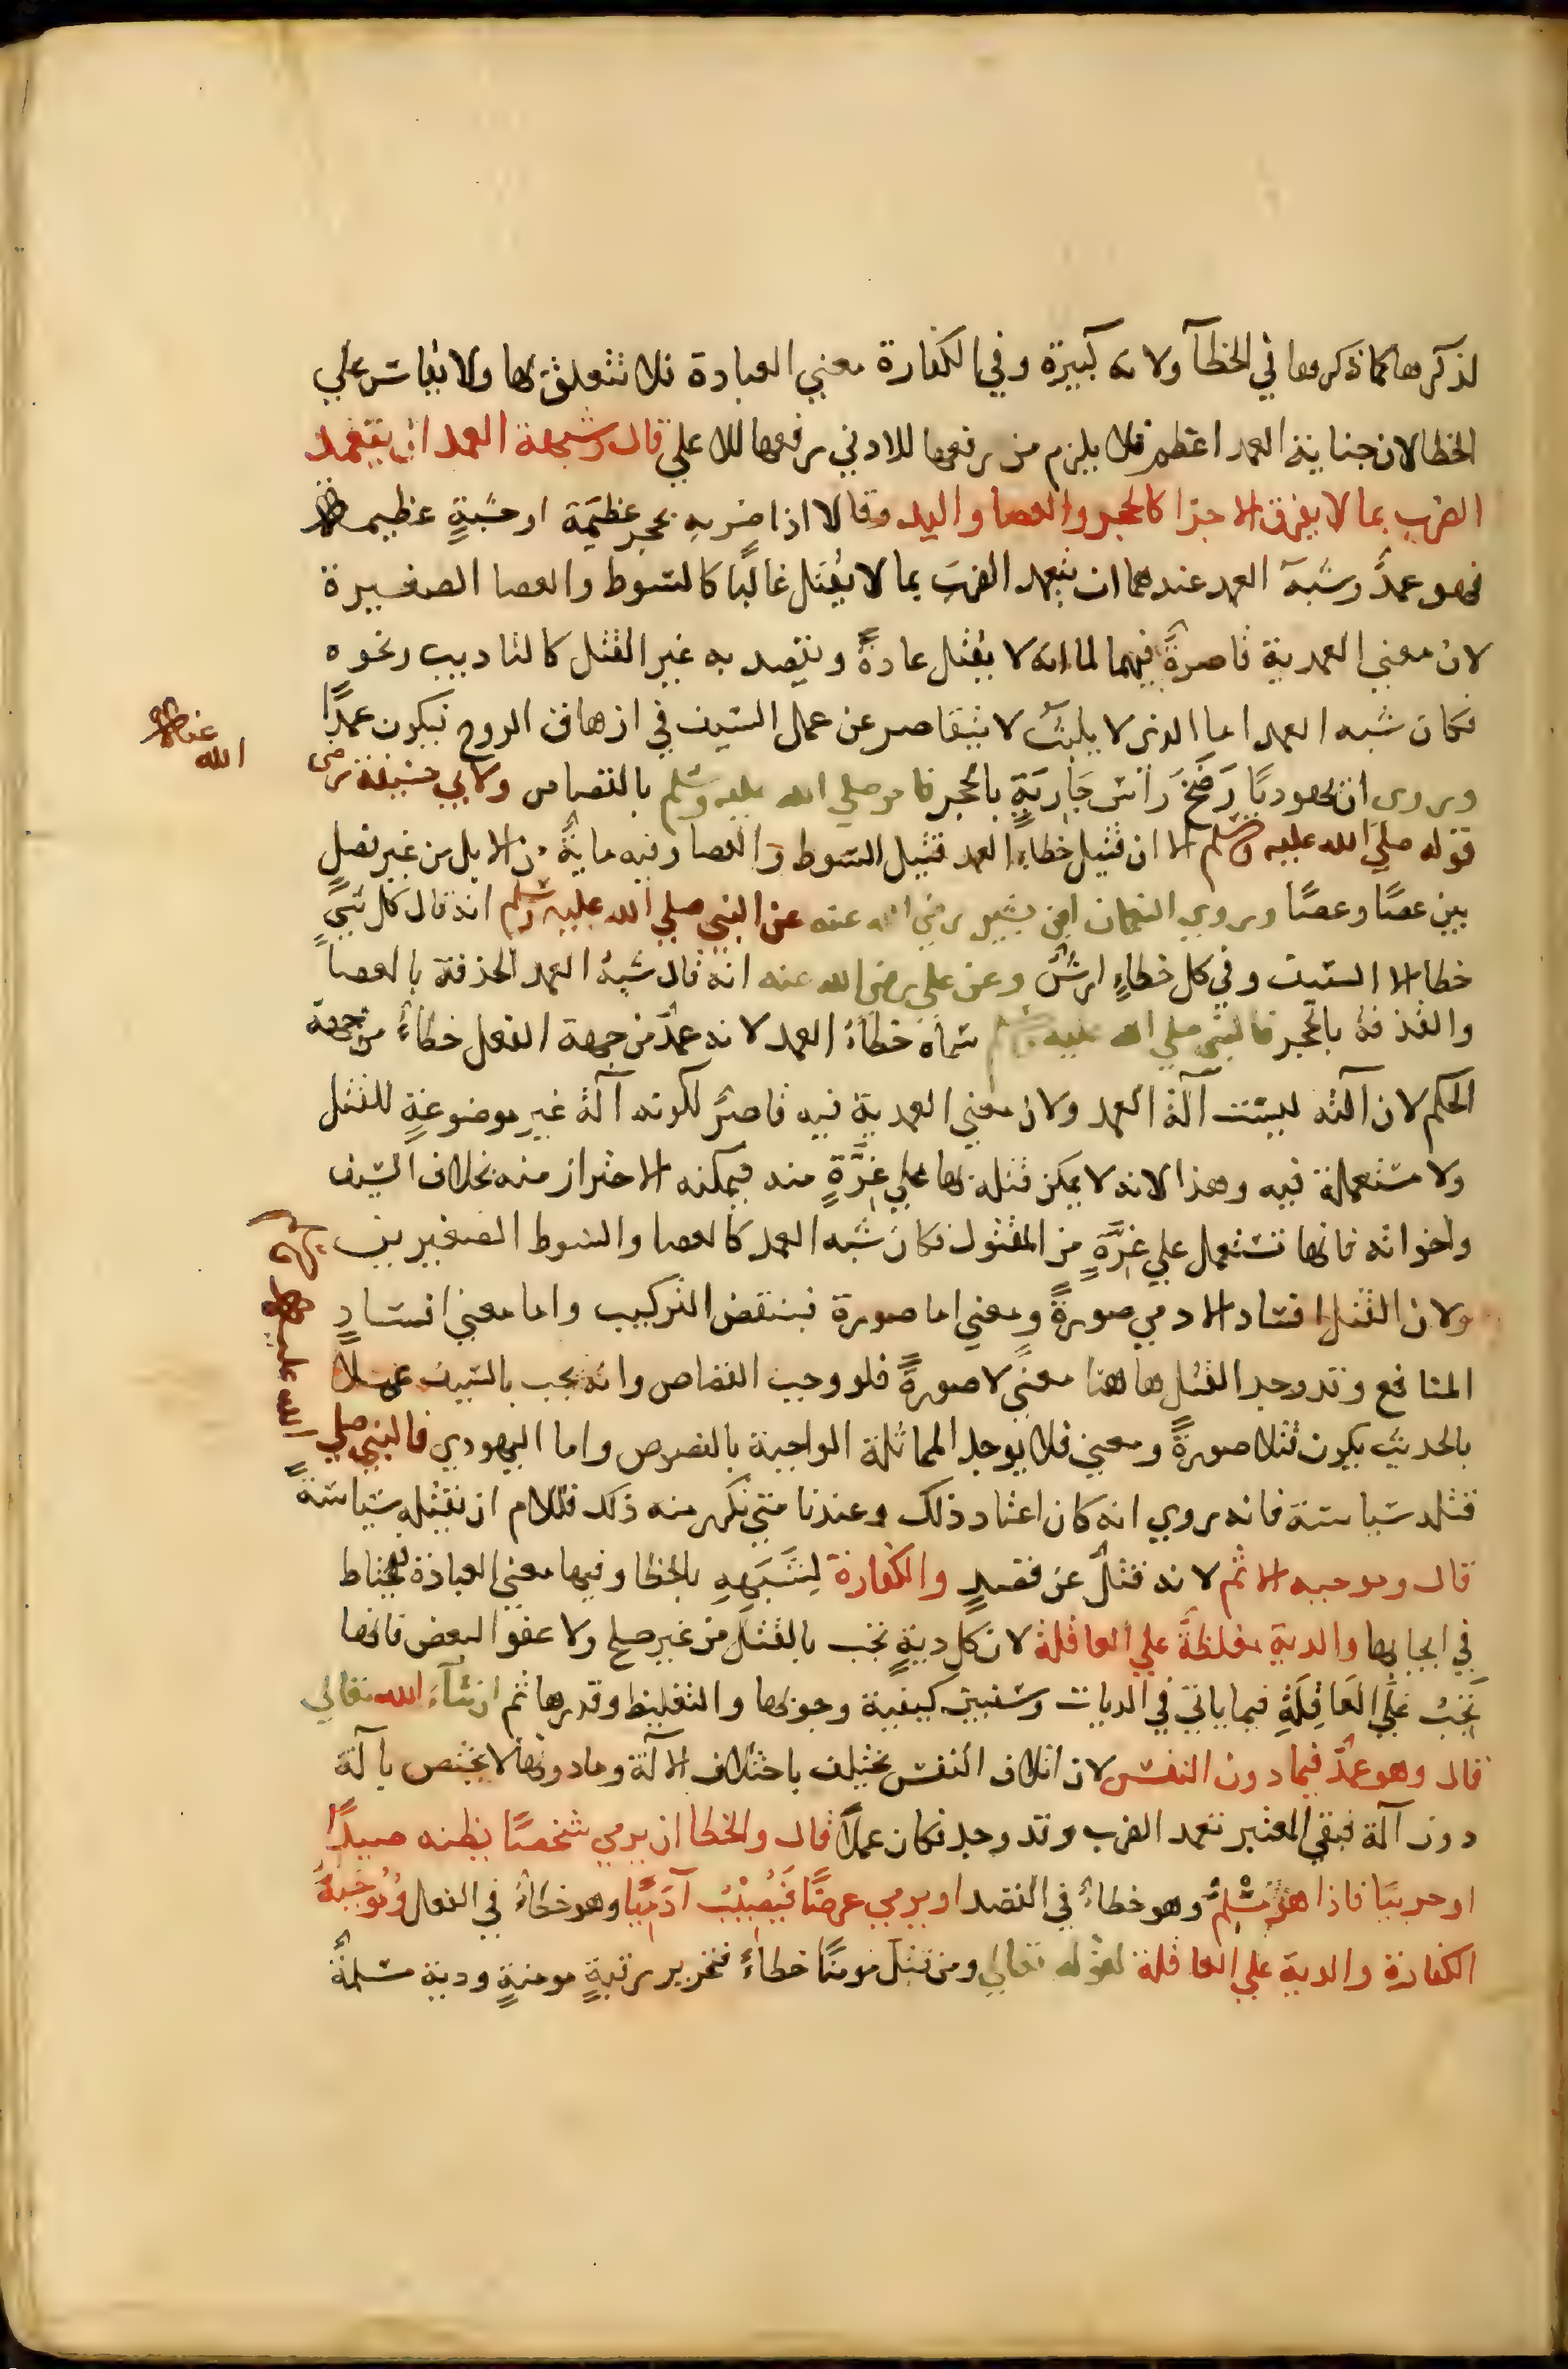 لذكرها كما ذكرها في الخطآ ولانه كبيرة وفي الكفارة معني العبادة فلا تتعلق بها ولا يقاس علي
الخطا لان جناية العمد اعظم فلا يلزم من رفعها للادني رفعها للاعلي قال وشبهة العمد ان يتعمد
الضرب بما لا يفرق الاجزا كالحجر والعصا واليد وقالا اذا ضربه بحجر عظيمة او خشبةٍ عظيمة
فهو عمدٌ وشبه العمد عندهما ان يتعمد الضرب بما لا يقتل غالبًا كالسوط والعصا الصغيرة
لان معني العمدية قاصرةٌ فيهما لما انه لا يقتل عادةً ويقصد به غير القتل كالتاديب ونحوه
فكان شبه العمد اما الذي لا يلبث لا يتقاصر عن عمل السيف في ازهاق الروح فيكون عمدًا
وروي ان يهوديًا رَضَخَ رَاسَ جَارِيَةٍ بالحجر فامر صلي الله عليه وسلم بالقصاص ولابي حنيفة رضي
الله عنه
قوله صلي الله عليه وسلم الا ان قتيل خطاءِ العمد قتيل السوط والعصا وفيه مايةٌ من الابل من غير فصلٍ
بين عصًا وعصًا وروي النعمان ابن بشير رضي الله عنه عن النبي صلي الله عليه وسلم انه قال كل شيءٍ
خطا الا السيف وفي كل خطاءٍ ارشٌ وعن علي رضي الله عنه انه قال شبهُ العمد الحذفة بالعصا
والقذفة بالحجر فالنبي صلي الله عليه وسلم سماه خطاءُ العمد لانه عمدٌ من جهة الفعل خطاءٌ من جهة
الحكم لان آلته ليست آلة العمد ولان معني العمدية فيه قاصرٌ لكونه آلةً غيرِ موضوعةٍ للقتل
ولا مستعملة فيه وهذا لانه لا يمكن قتله بها علي غِرَّةٍ منه فيمكنه الاحتراز منه بخلاف السيف
واخواته فانها تستعمل علي غِرَّةٍ من المقتول فكان شبه العمد كالعصا والسوط الصغيرين
ولان القتل افساد الادمي صورةً ومعني اما صورة فبنقض التركيب واما معني افسادِ
المنافع وقد وجد القتل هاهنا معنًي لا صورةً فلو وجب القصاص وانه يجب بالسيف عملًا
بالحديث يكون قتلا صورةً ومعني فلا يوجد المماثلة الواجبة بالنصوص واما اليهودي فالنبي صلي
الله عليه
قتله سياسة فانه روي انه كان اعتاد ذلك وعندنا متي تكرر منه ذلك فللامام ان يقتله سياسةً
قال وموجبه الاثم لانه قتلٌ عن قصدٍ والكفارة لِشَبَهِهِ بالخطا وفيها معني العبادة فيحتاط
في ايجابها والدية مغلظةٌ علي العاقلة لان كل ديةٍ تجب بالقتل من غير صلح ولا عفو البعض فانها
تَجِبُ عَلَي العَاقِلَةِ فيما ياتي في الديات وسنبين كيفية وجوبها والتغليظ وقدرها ثم ان شآء الله تعالي
قال وهو عمدٌ فيما دون النفس لان اتلاف النفس يختلف باختلاف الآلة وما دونها لا يختص بآلة
دون آلة فبقي المعتبر تعمد الضرب وقد وجد فكان عمدًا قال والخطا ان يرمي شخصًا يظنه صيدًا
او حربيًا فاذا هو مُسْلِمٌ وهو خطاءٌ في القصد او يرمي عرضًا فَيُصِيْبُ آدميًّا وهو خطاءٌ في الفعل وموجبهُ
الكفارة والدية علي العاقلة لقوله تعالي ومن قتل مومنًا خطاءً فتحرير رقبةٍ مومنةٍ ودية مسلمةٌ